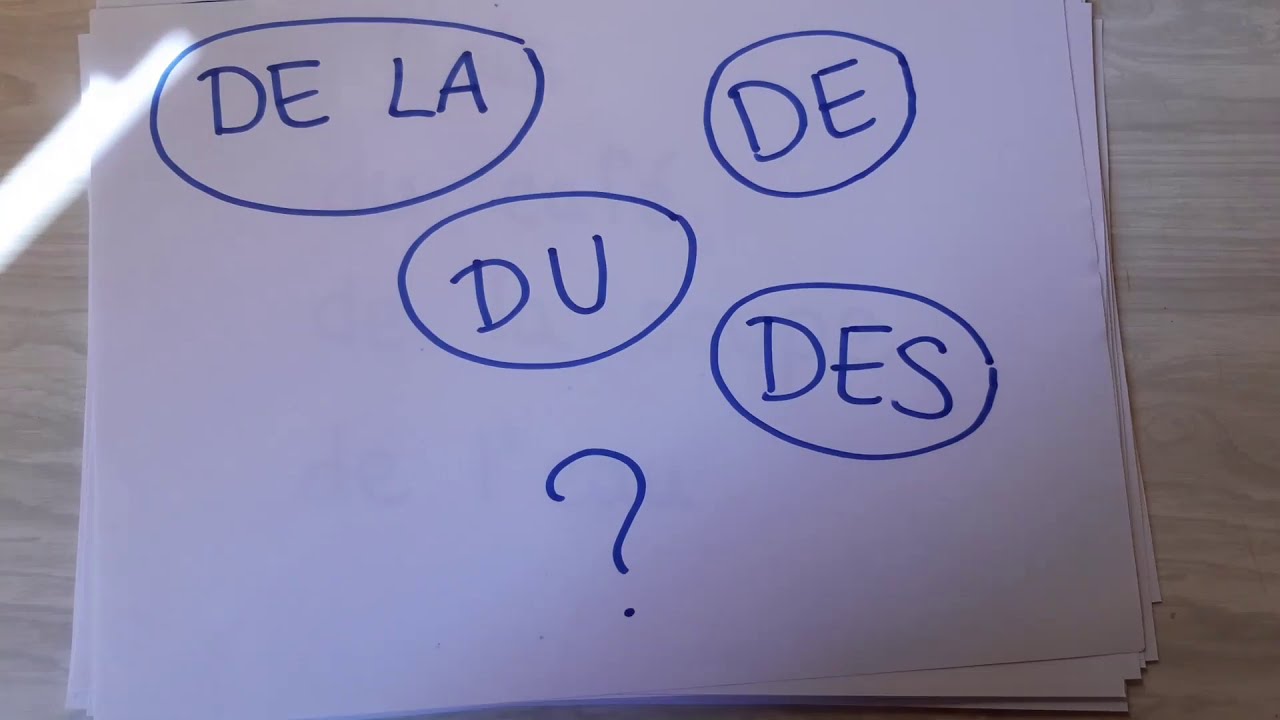 DE LA
DE
DU
DES
?